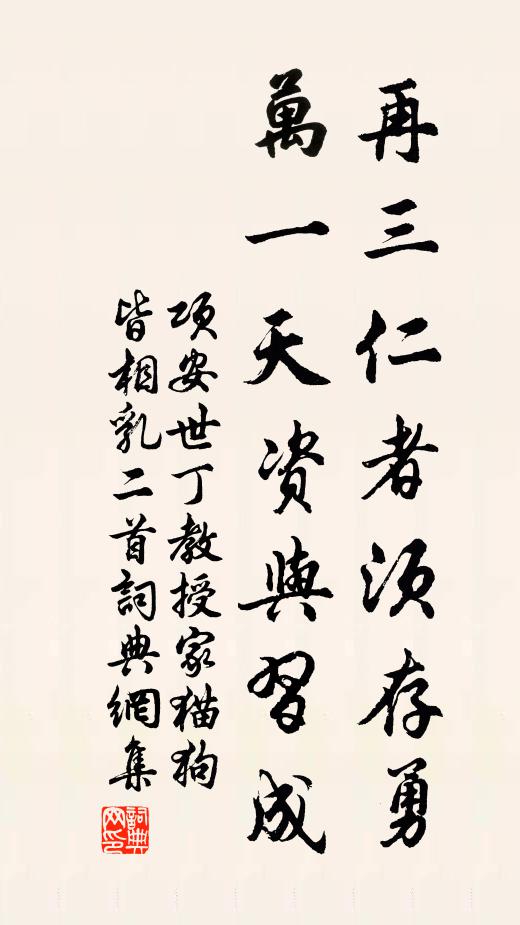 再三仁者須存勇
萬一天資與習成
項安世丁教授家猫狗
皆相乳二首詞典網集
詞典
网印